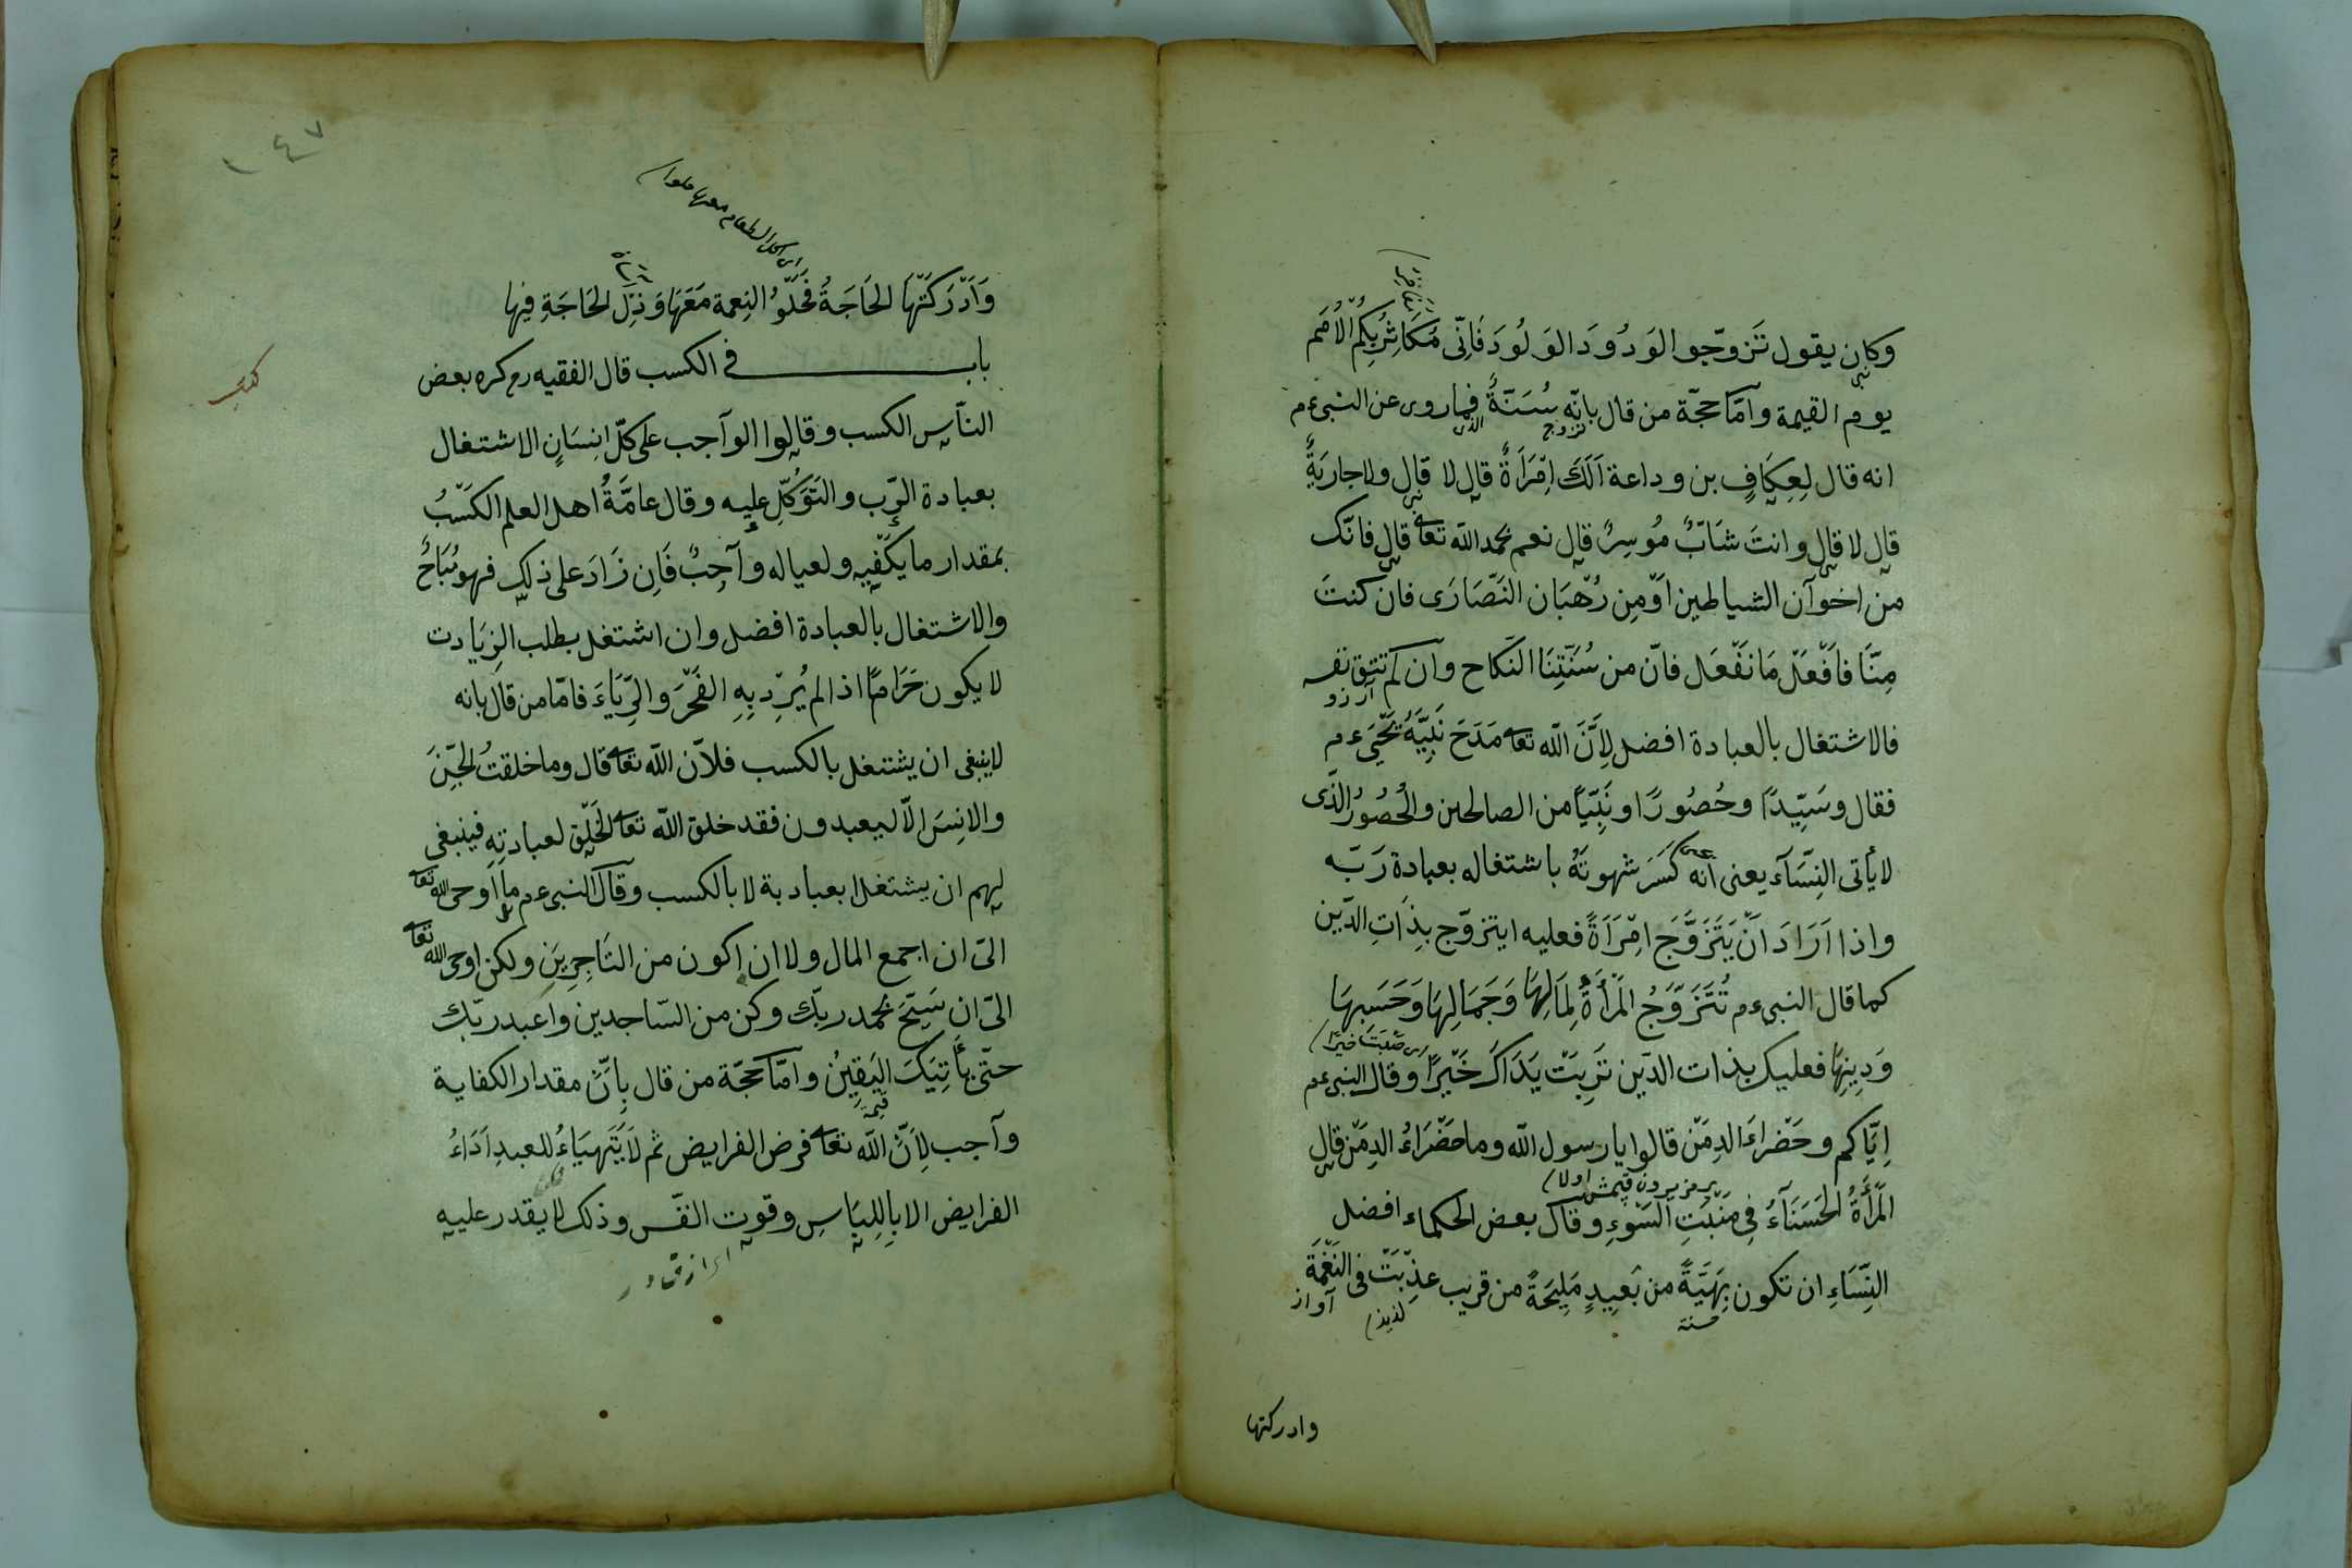 وكان يقول تَزوّجوا الوَدُودَ الوَلُودَ فَاِنّى مُكَاثِرٌ بِكُمُ الْاُمَم
يوم القيمة وامّا حجّة من قال بانّه سُنَّةٌ فيما روى عن النبى ءم
انه قال لِعِكَافٍ بن وداعة اَلَكَ اِمْرَاَةٌ قال لا قال ولا جاريَةٌ
قال لا قال وانتَ شَابٌّ مُوسِرٌ قال نعم بحمد الله تعا قال فانّك
من اخوآن الشياطين اَوْ مِن رُهْبَان النَّصَارَى فان كنتَ
مِنَّا فاَفْعَلْ مَا نَفْعَل فانّ من سُنَّتِنَا النّكاح وان لم تتق نفسه
آرزو
فالاشتغال بالعبادة افضل لِاَنَّ الله تعا مَدَحَ نَبِيَّهُ يَحْيَى ءم
فقال وسَيِّدًا وحُصُورًا ونَبِيّاً من الصالحين والحُصُورُ الّذى
لا يأتى النِّسَآء يعنى انه كَسَرَ شهوتَهُ باشتغاله بعبادة رَبّه
واذا اَرَادَ اَنْ يَتَزَوَّجَ امْرَاَةً فعليه ايتزوّج بِذَاتِ الدّين
كما قال النبى ءم تُتَزَوَّجُ المَرْأَةُ لِمَالِهَا وَجَمَالِهَا وَحَسَبِهَا
وَدِينِهَا فعليك بذات الدّين تَرِبَتْ يَدَاكَ خَيْرًا وقال النبى ءم
اِيَّاكم وحَضْراءَ الدِمَنْ قالوا يا رسول الله وما حَضْرَاءُ الدِمَنْ قال
المَرْأَةُ الحَسَنَآءُ فِى مَنْبَتِ السّوءِ وقال بعض الحكماء افضل
النِّسَاءِ ان تكون بِهَيَّةً من بَعِيدٍ مَلِيحَةً من قريب عذّبَتْ فى النَّغْمَة
حسنة لذيذ آواز
وادركتها
١٤٧
وَاَدْرَكَتْهَا الحَاجَةُ فَخُلُوُّ النِعمة مَعَهَا وَذِلّ الحَاجَةِ فِيها
باب فى الكسب قال الفقيه رح كره بعض
النآس الكسب وقالوا الوآجب على كلّ انِسَانٍ الاشتغال
بعبادة الرّب والتَوَكُّلِ عليه وقال عامَّةُ اهل العلم الكَسْبُ
بمقدار ما يكَفْيِه ولعياله وآجبٌ فَاِن زَادَ على ذلك فهو مُبَاحٌ
والاشتغال بالعبادة افضل وان اشتغل بطلب الزِيَادت
لا يكون حَرَامًا اذا لم يُرِدْ بِهِ الفَخْرَ والرِّيَاءَ فامّا من قال بانه
لا ينبغى ان يشتغل بالكسب فلاَنّ الله تعا قال وما خلقتُ الجِّنَ
والانِسَ الاّ ليعبدون فقد خلق الله تعا الخَلْق لعبادتِهِ فينبغى
لهم ان يشتغلا بعبادية لا بالكسب وقال النبى ءم ما اَوحى الله تعا
الىّ ان اجمع المال ولا ان اكون من التَاجِرِينِ ولكن اوحى الله تعا
الىّ ان سَبّحَ بحمد ربّك وكن من السّاجدين واعبد ربّك
حتّى يَأَتِيَكَ اليَقِيُن وامّا حجّة من قال بِاَنَّ مقدار الكفاية
وآجب لِاَنَّ الله تعا فرض الفرايض ثم لاَ يَتَهيَاءُ للعبدِ اَدَاءُ
الفرايض الا بِاللِبَاسِ وقوت النفّس وذلك لا يقدر عليه